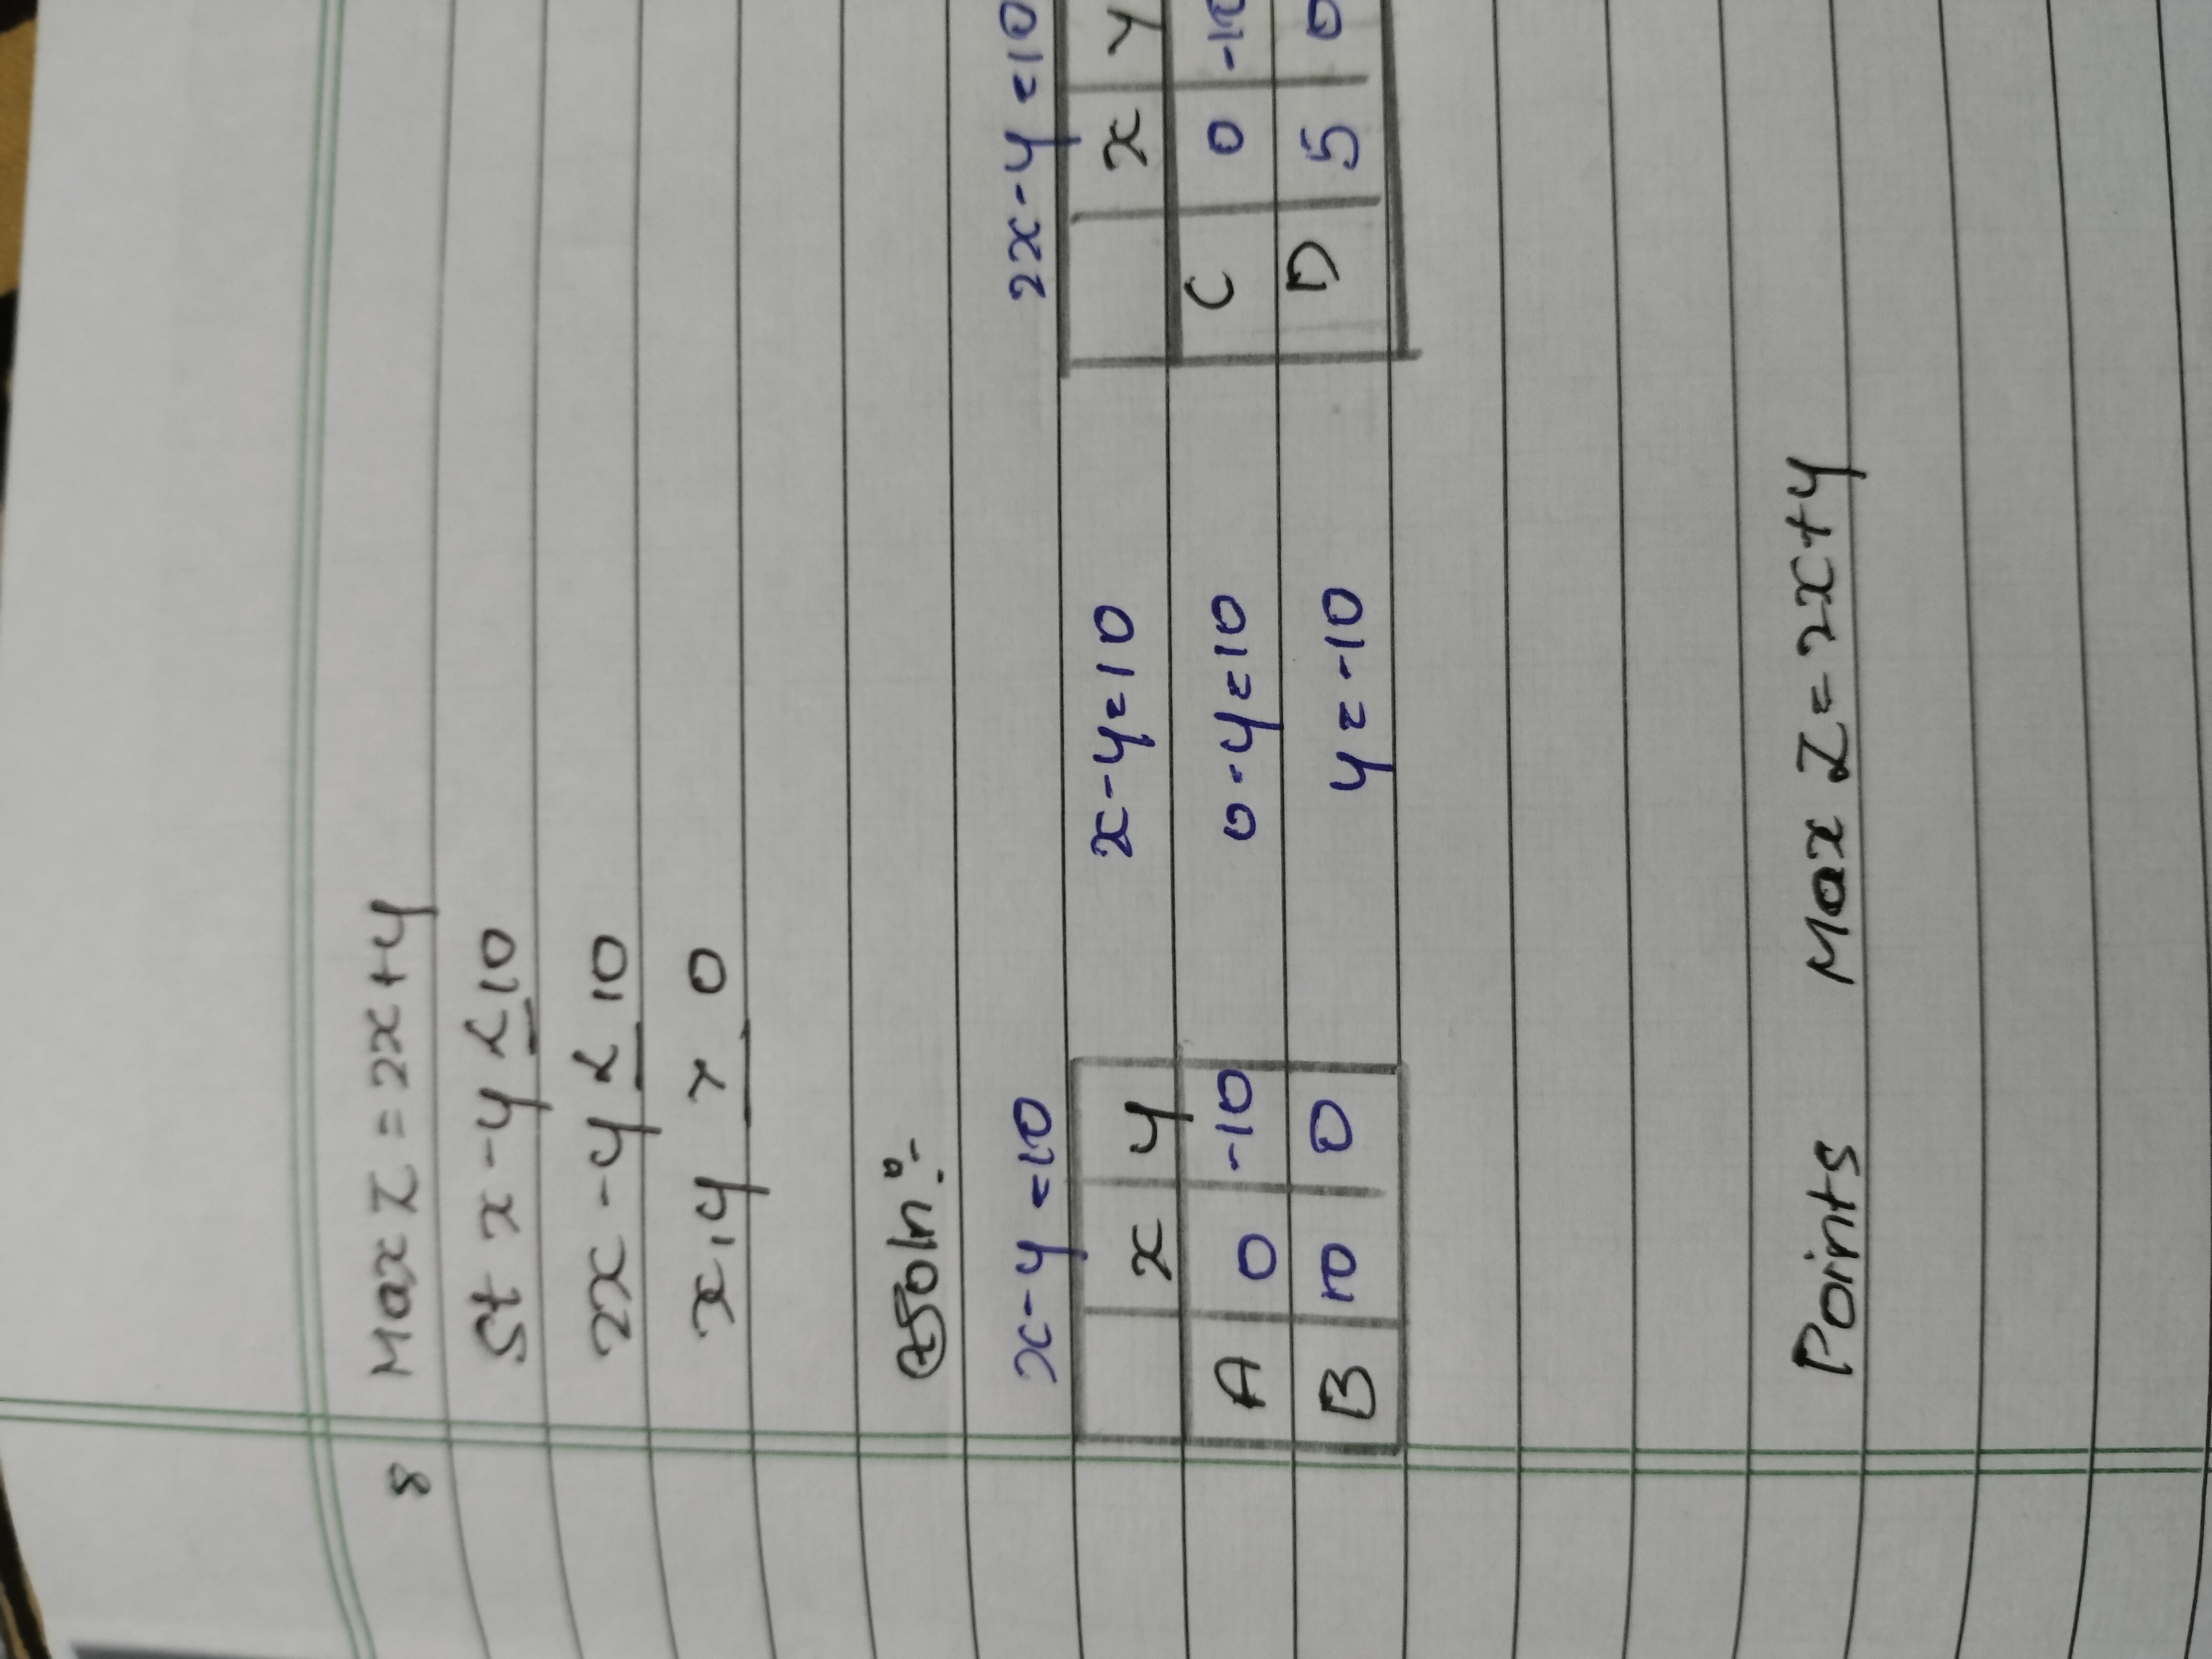 8 Max Z = 2x+y
St x-y ≤ 10
2x-y ≤ 10
x,y ≥ 0
Soln:-
x-y=10 2x-y=10
x y x-y=10 x y
A 0 -10 0-y=10 C 0 -10
B 10 0 y=-10 D 5 0
Points Max Z=2x+y